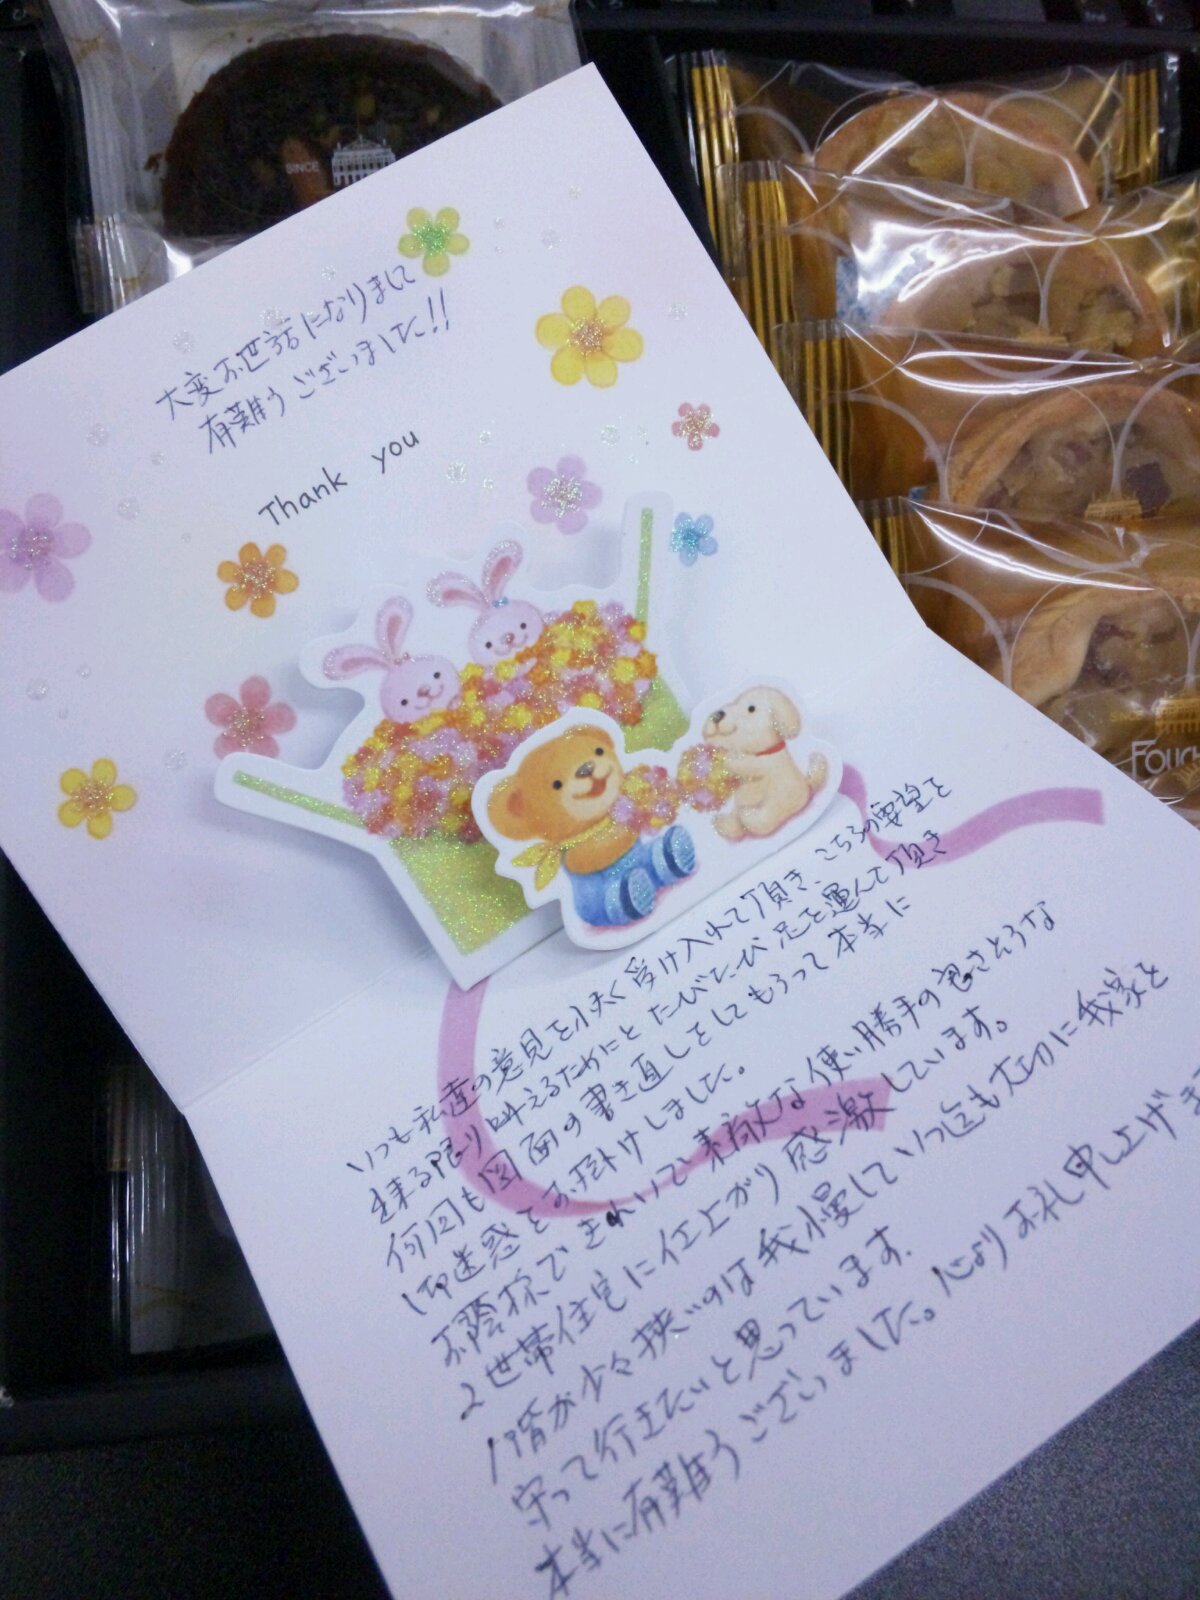 SINCE
大変お世話になりまして
有難うございました!!
Thank you
いつも私達の意見を快く受け入れて頂き、こちらの要望を
出来る限り叶えるためにと たびたび足を運んで頂き
何回も図面の書き直しをしてもらって本当に
御迷惑をお掛けしました。
お陰様で きれいで素敵な使い勝手の良さそうな
2世帯住宅に仕上がり感激しています。
1階が少々狭いのは我慢していつ迄も大切に我家を
守って行きたいと思っています.
本当に有難うございました。心よりお礼申し上げま